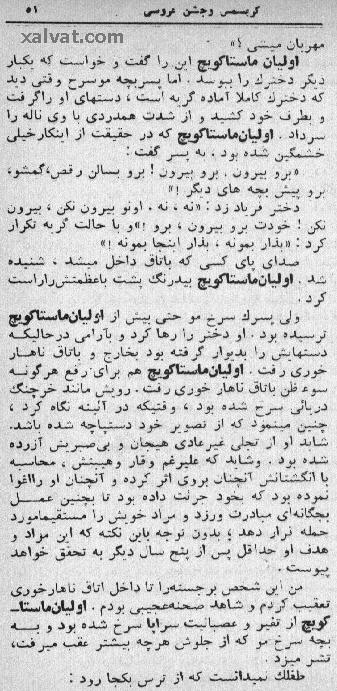 کریسمس وجشن عروسی
۵۱
xalvat.com
مهربان میشی ؟»
اولیان ماستاکویچ این را گفت و خواست که یکبار
دیگر دخترك را ببوسد . اما پسربچه موسرخ وقتی دید
که دخترك کاملا آماده گریه است ، دستهای او راگرفت
و بطرف خود کشید و از شدت همدردی با وی ناله را
سرداد . اولیان‌ماستاکویچ که در حقیقت از اینکارخیلی
خشمگین شده بود ، به پسر گفت :
«برو بیرون . برو بیرون ! برو بسالن رقص،گمشو،
برو پیش بچه های دیگر !»
دختر فریاد زد : «نه ، نه . اونو بیرون نکن ، بیرون
نکن ! خودت برو بیرون ، برو !»و با حالت گریه تکرار
کرد : «بذار بمونه ، بذار اینجا بمونه !»
صدای پای کسی که باتاق داخل میشد ، شنیده
شد . اولیان‌ماستاکویچ بیدرنگ پشت باعظمتش‌راراست
کرد .
ولی پسرك سرخ مو حتی بیش از اولیان‌ماستاکویچ
ترسیده بود . او دختر را رها کرد و بآرامی درحالیکه
دستهایش را بدیوار گرفته بود بخارج و باتاق ناهار
خوری رفت . اولیان‌ماستاکویچ هم برای رفع هرگونه
سوء ظن باتاق ناهار خوری رفت . رویش مانند خرچنگ
دریائی سرخ شده بود ، وقتیکه در آئینه نگاه کرد ،
چنین مینمود که از تصویر خود دستپاچه شده باشد.
شاید او از تجلی غیرعادی هیجان و بی‌صبریش آزرده
شده بود . وشاید که علیرغم وقار وهیبتش ، محاسبه
با انگشتانش آنچنان بروی اثر کرده و آنچنان او رااغوا
نموده بود که بخود جرئت داده بود تا بچنین عمل
بچگانه‌ای مبادرت ورزد و مراد خویش را مستقیمامورد
حمله قرار دهد ؛ بدون توجه باین نکته که این مراد و
هدف او حداقل پس از پنج سال دیگر به تحقق خواهد
پیوست .
من این شخص برجسته‌را تا داخل اتاق ناهارخوری
تعقیب کردم و شاهد صحنه‌عجیبی بودم . اولیان‌ماستا‌ـ
کویچ از تغیر و عصبانیت سراپا سرخ شده بود و به
بچه سرخ مو که از جلوش هرچه بیشتر عقب میرفت،
تشر میزد .
طفلك نمیدانست که از ترس بکجا رود :